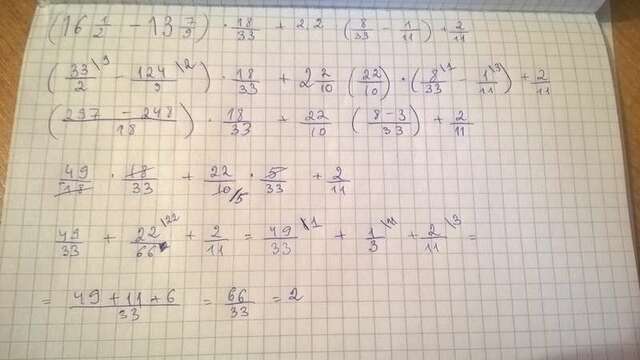 (16 1/2 - 13 7/9) · 18/33 + 2.2 (8/33 - 1/11) + 2/11
(33/2 \9 - 124/9 \2) · 18/33 + 2 2/10 (22/10) · (8/33 \1 - 1/11 \3) + 2/11
(297 - 248/18) · 18/33 + 22/10 (8-3/33) + 2/11
49/18 · 18/33 + 22/10/5 · 5/33 + 2/11
49/33 + 22/66 \22 + 2/11 = 49/33 \1 + 1/3 \11 + 2/11 \3 =
= 49+11+6/33 = 66/33 = 2